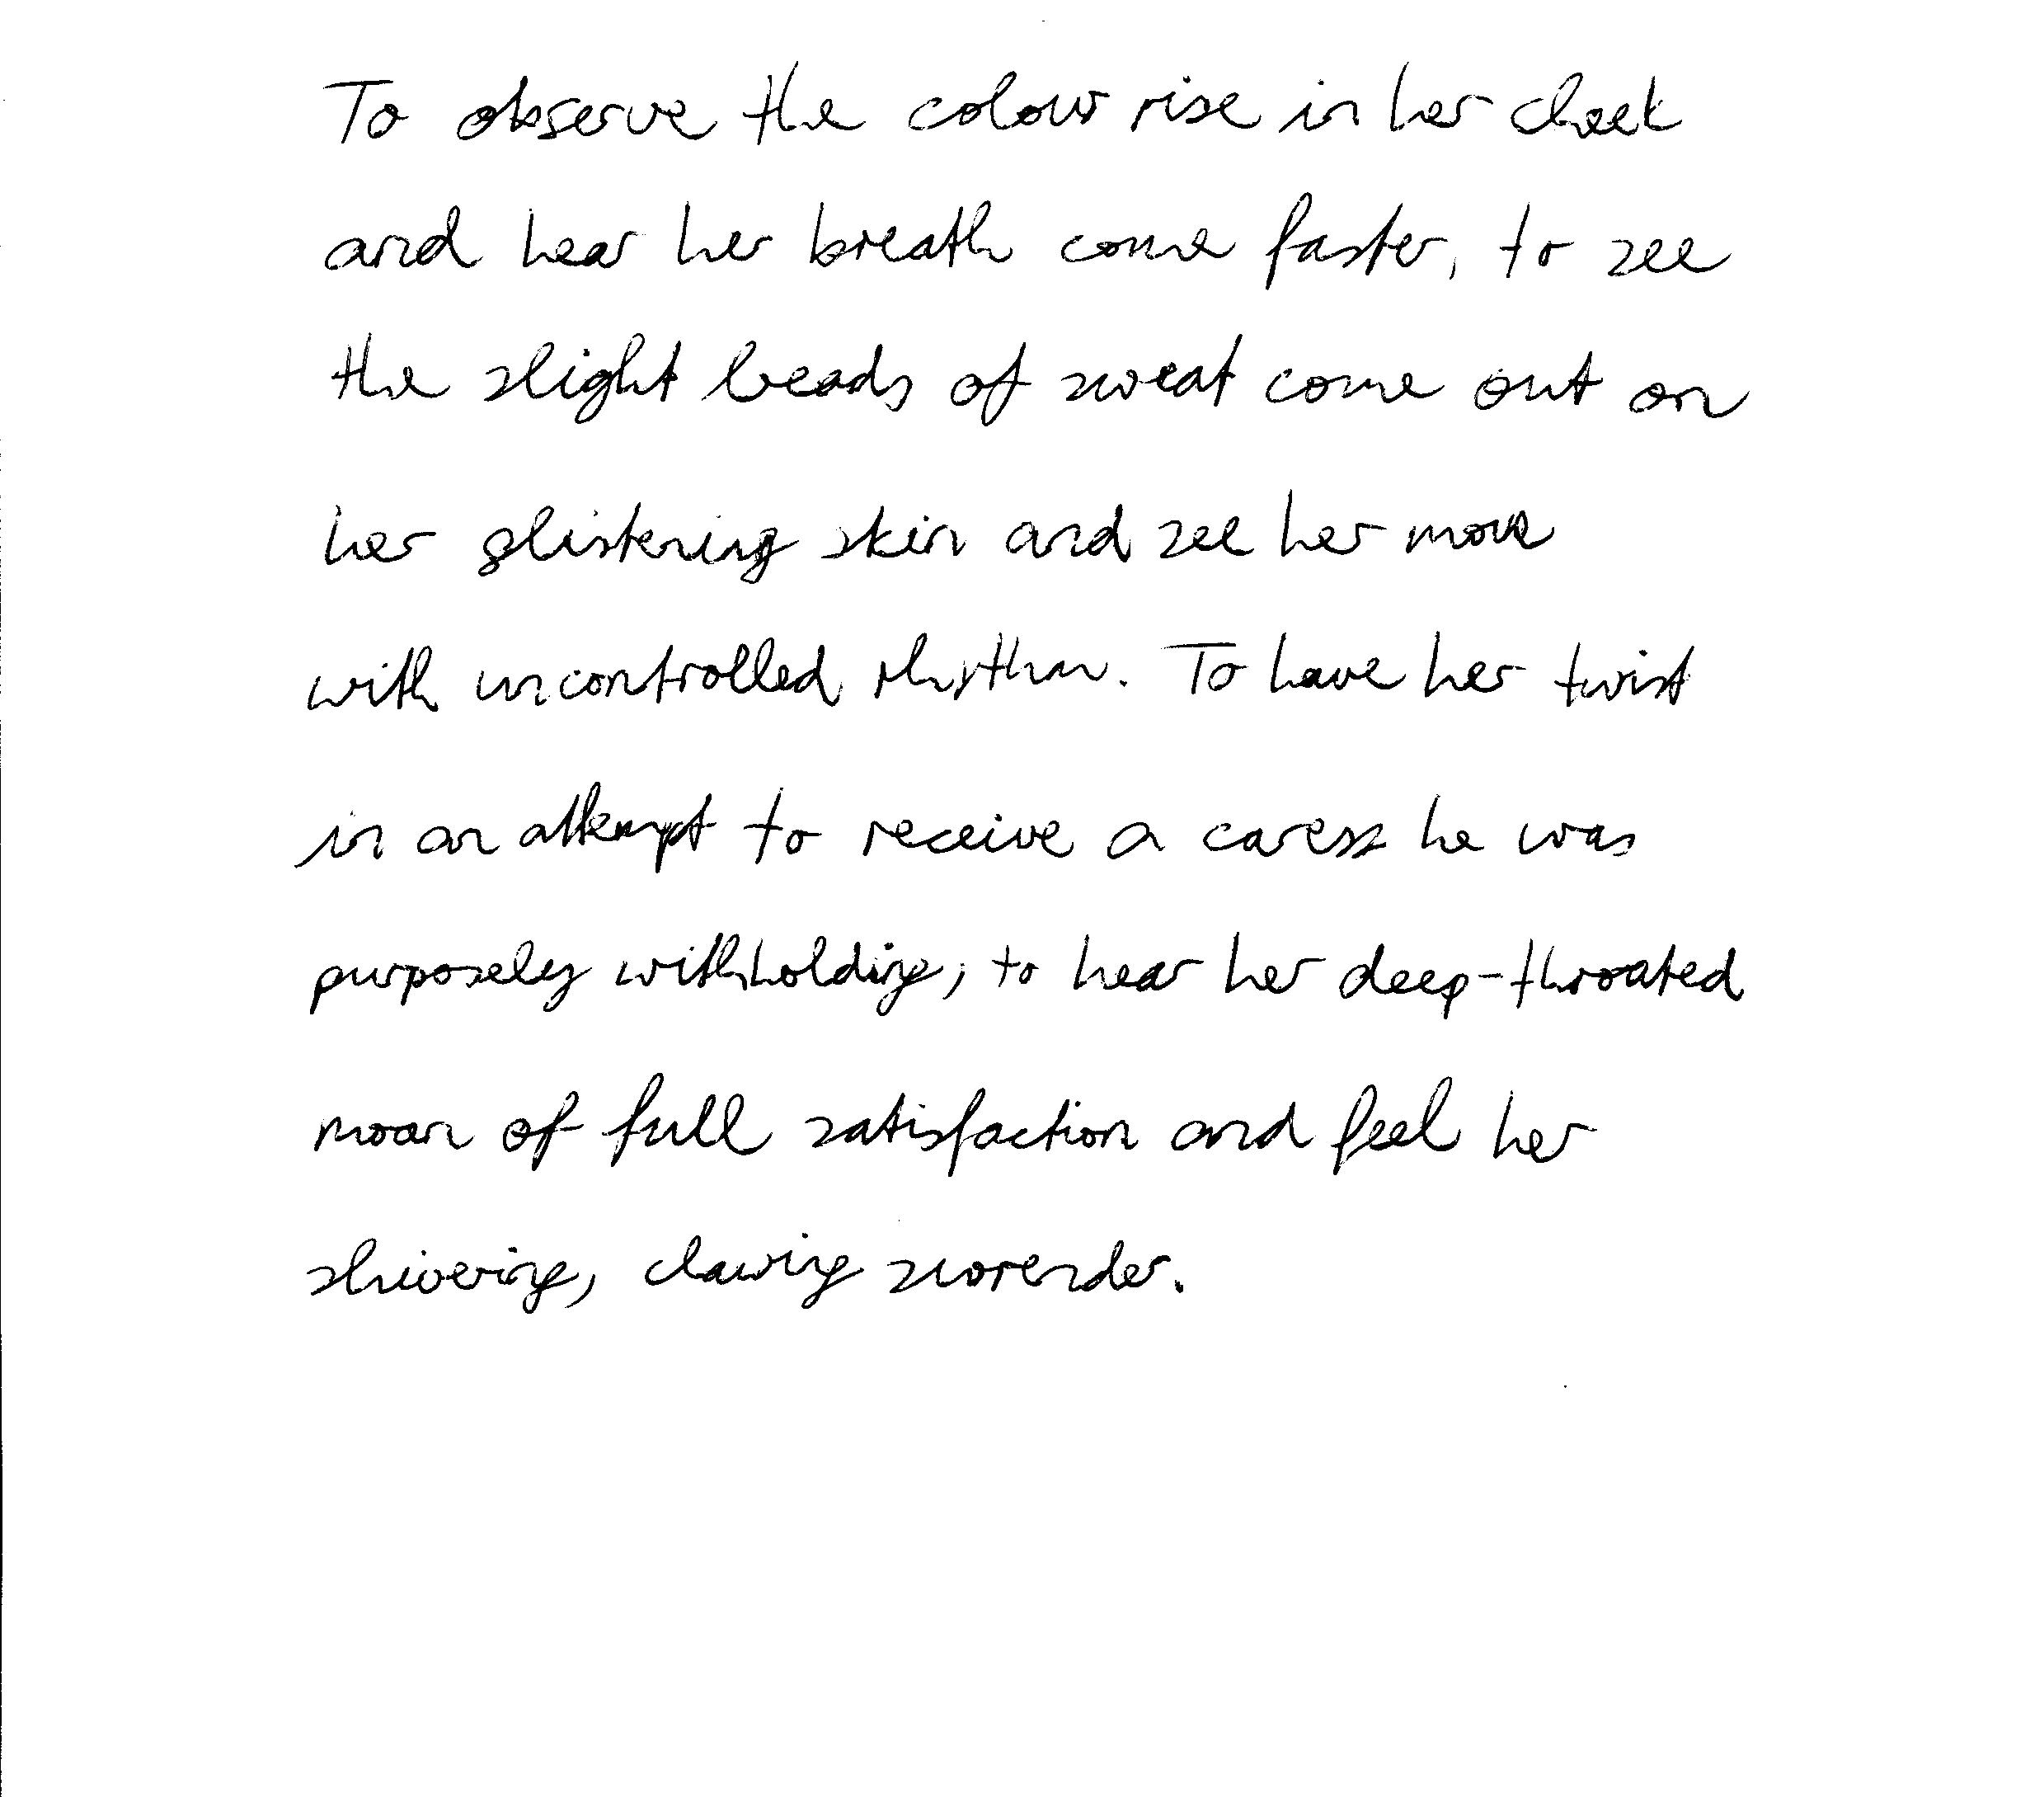 To observe the colour rise in her cheek
and hear her breath come faster, to see
the slight beads of sweat come out on
her glistening skin and see her move
with uncontrolled rhythm. To have her twist
in an attempt to receive a caress he was
purposely withholding; to hear her deep-throated
moan of full satisfaction and feel her
shivering, clawing surrender.